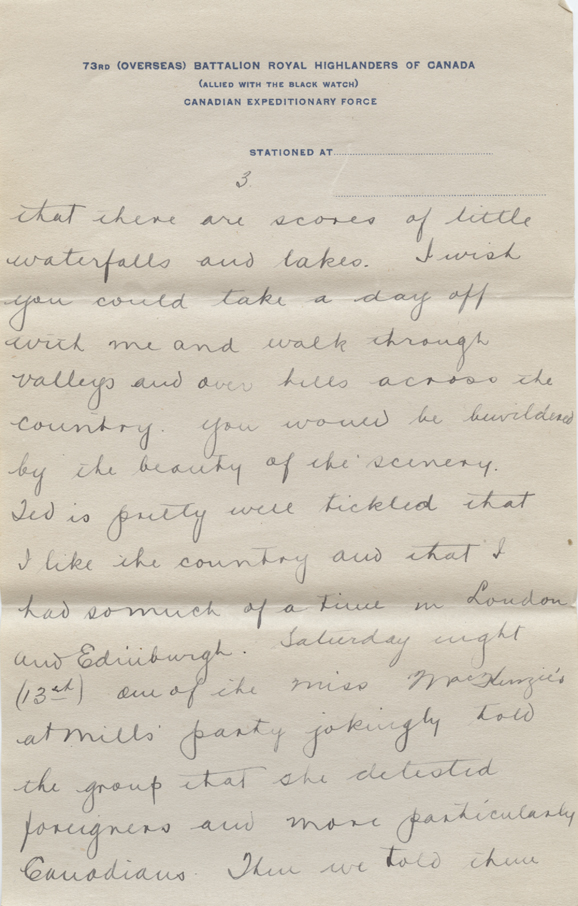 73RD (OVERSEAS) BATTALION ROYAL HIGHLANDERS OF CANADA
(ALLIED WITH THE BLACK WATCH)
CANADIAN EXPEDITIONARY FORCE
STATIONED AT
3
that there are scores of little
waterfalls and lakes. I wish
you could take a day off
with me and walk through
valleys and over hills across the
country. You would be bewildered
by the beauty of the scenery.
Ted is pretty well tickled that
I like the country and that I
had so much of a time in London
and Edinburgh. Saturday night
(13th) one of the miss MacKenzie's
at Mills' party jokingly told
the group that she detested
foreigners and more particularly
Canadians. Then we told them